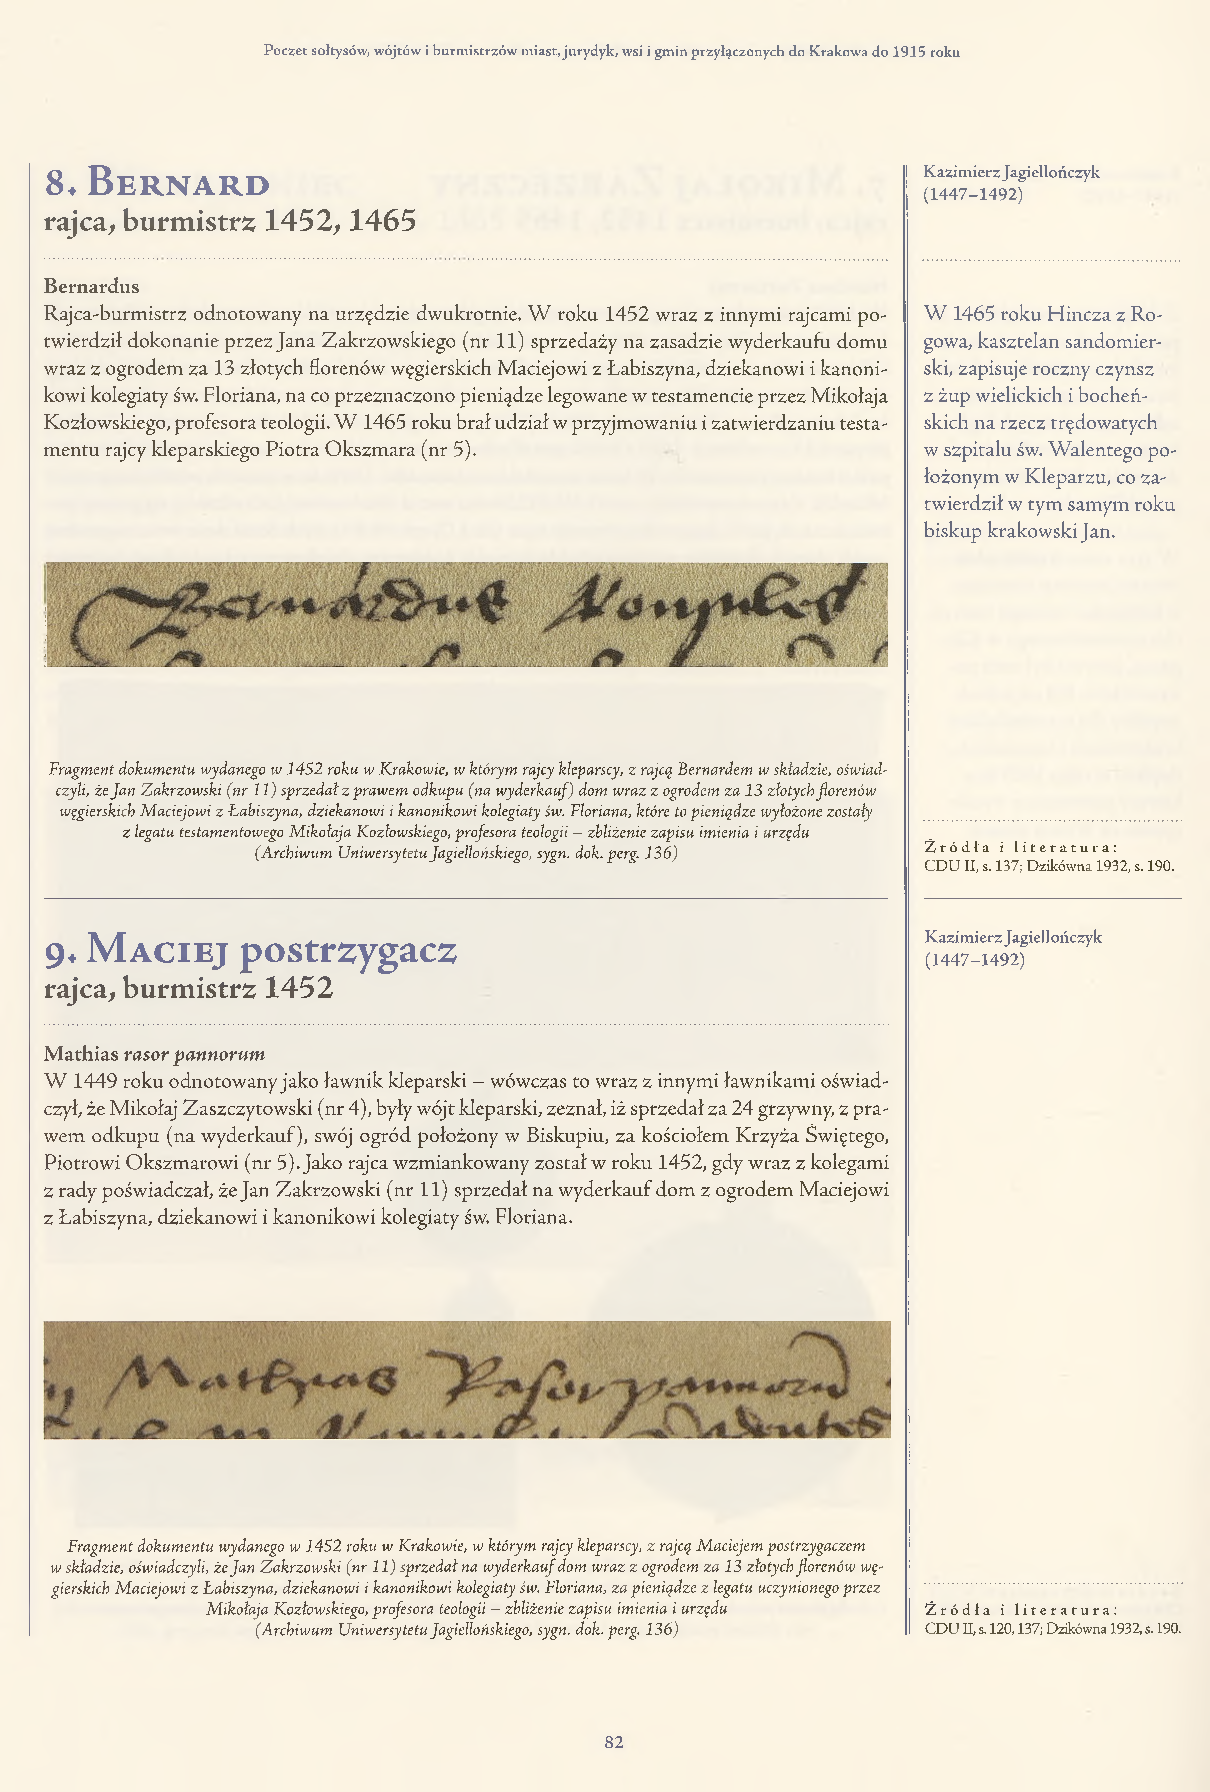 Poczet sołtysów, wójtów i burmistrzów miast, jurydyk, wsi i gmin przyłączonych do Krakowa do 1915 roku
8. Bernard
rajca, burmistrz 1452, 1465
Bernardus
Rajca-burmistrz odnotowany na urzędzie dwukrotnie. W roku 1452 wraz z innymi rajcami po-
twierdził dokonanie przez Jana Zakrzowskiego (nr 11) sprzedaży na zasadzie wyderkaufu domu
wraz z ogrodem za 13 złotych florenów węgierskich Maciejowi z Łabiszyna, dziekanowi i kanoni-
kowi kolegiaty św. Floriana, na co przeznaczono pieniądze legowane w testamencie przez Mikołaja
Kozłowskiego, profesora teologii. W 1465 roku brał udział w przyjmowaniu i zatwierdzaniu testa-
mentu rajcy kleparskiego Piotra Okszmara (nr 5).
Bernardus
Fragment dokumentu wydanego w 1452 roku w Krakowie, w którym rajcy kleparscy, z rajcą Bernardem w składzie, oświad-
czyli, że Jan Zakrzowski (nr 11) sprzedał z prawem odkupu (na wyderkauf) dom wraz z ogrodem za 13 złotych florenów
węgierskich Maciejowi z Łabiszyna, dziekanowi i kanonikowi kolegiaty św. Floriana, które to pieniądze wyłożone zostały
z legatu testamentowego Mikołaja Kozłowskiego, profesora teologii – zbliżenie zapisu imienia i urzędu
(Archiwum Uniwersytetu Jagiellońskiego, sygn. dok. perg. 136)
Kazimierz Jagiellończyk
(1447–1492)
W 1465 roku Hincza z Ro-
gowa, kasztelan sandomier-
ski, zapisuje roczny czynsz
z żup wielickich i bocheń-
skich na rzecz trędowatych
w szpitalu św. Walentego po-
łożonym w Kleparzu, co za-
twierdził w tym samym roku
biskup krakowski Jan.
Źródła i literatura:
CDU II, s. 137; Dzikówna 1932, s. 190.
9. Maciej postrzygacz
rajca, burmistrz 1452
Mathias rasor pannorum
W 1449 roku odnotowany jako ławnik kleparski – wówczas to wraz z innymi ławnikami oświad-
czył, że Mikołaj Zaszczytowski (nr 4), były wójt kleparski, zeznał, iż sprzedał za 24 grzywny, z pra-
wem odkupu (na wyderkauf), swój ogród położony w Biskupiu, za kościołem Krzyża Świętego,
Piotrowi Okszmarowi (nr 5). Jako rajca wzmiankowany został w roku 1452, gdy wraz z kolegami
z rady poświadczał, że Jan Zakrzowski (nr 11) sprzedał na wyderkauf dom z ogrodem Maciejowi
z Łabiszyna, dziekanowi i kanonikowi kolegiaty św. Floriana.
Mathias Rasor pannorum
Fragment dokumentu wydanego w 1452 roku w Krakowie, w którym rajcy kleparscy, z rajcą Maciejem postrzygaczem
w składzie, oświadczyli, że Jan Zakrzowski (nr 11) sprzedał na wyderkauf dom wraz z ogrodem za 13 złotych florenów wę-
gierskich Maciejowi z Łabiszyna, dziekanowi i kanonikowi kolegiaty św. Floriana, za pieniądze z legatu uczynionego przez
Mikołaja Kozłowskiego, profesora teologii – zbliżenie zapisu imienia i urzędu
(Archiwum Uniwersytetu Jagiellońskiego, sygn. dok. perg. 136)
Kazimierz Jagiellończyk
(1447–1492)
Źródła i literatura:
CDU II, s. 120, 137; Dzikówna 1932, s. 190.
82